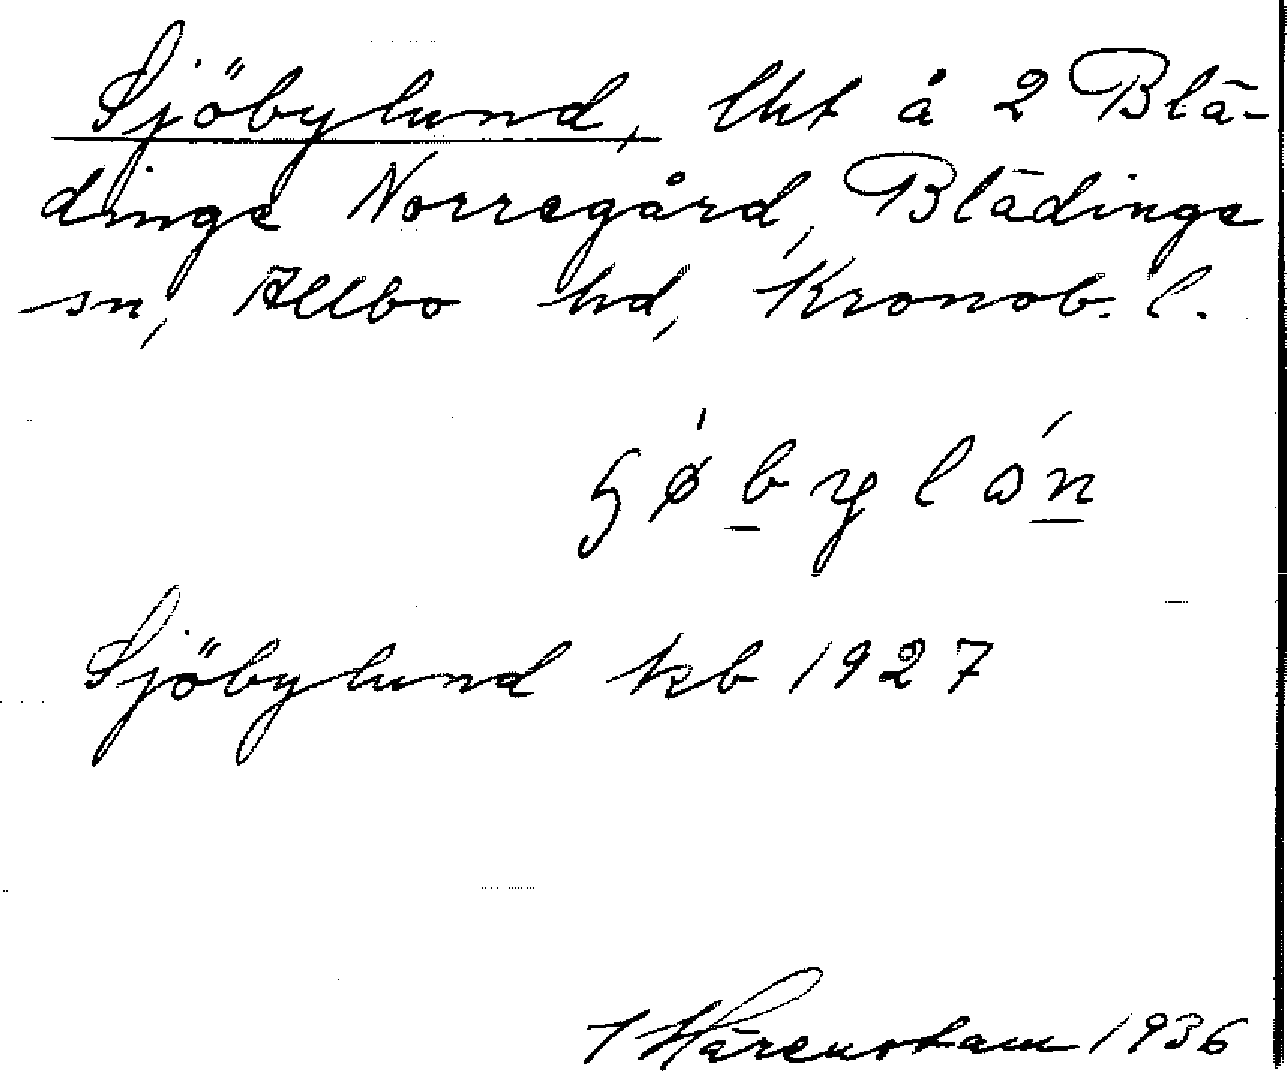 Sjöbylund, lht å 2 Blä-
dinge Norregård, Blädinge
sn, Allbo hd, Kronob. l.
Sjöbylund kb 1927
Härenstam 1936